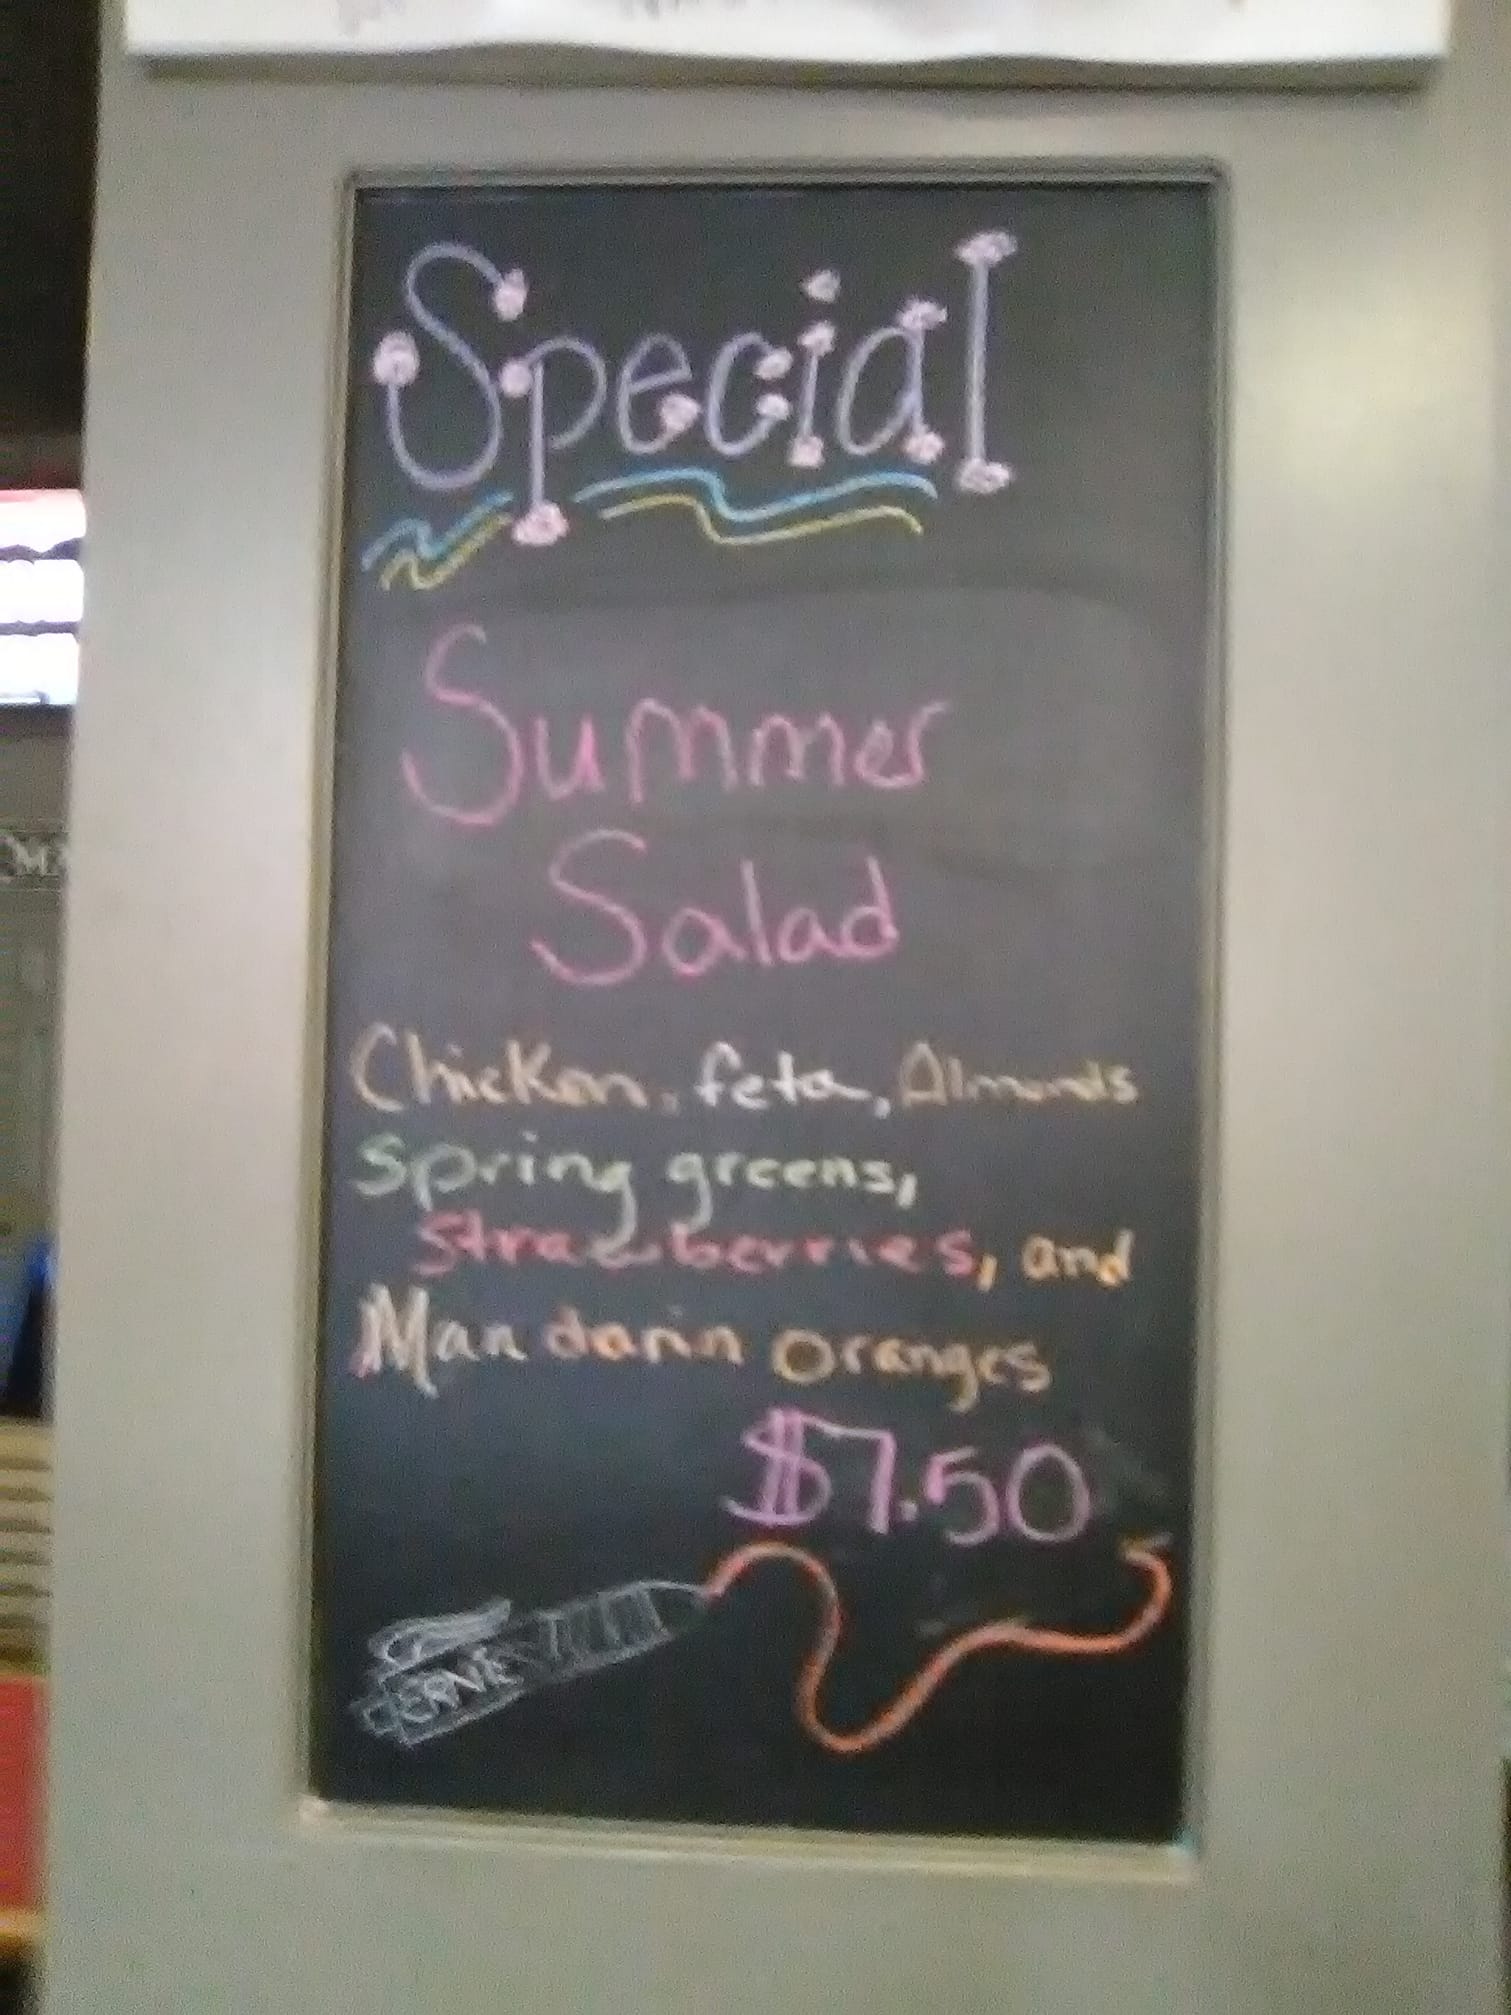 Special
Summer
Salad
Chicken, feta, Almonds
Spring greens,
Strawberries, and
Mandarin oranges
$7.50
ERNIE